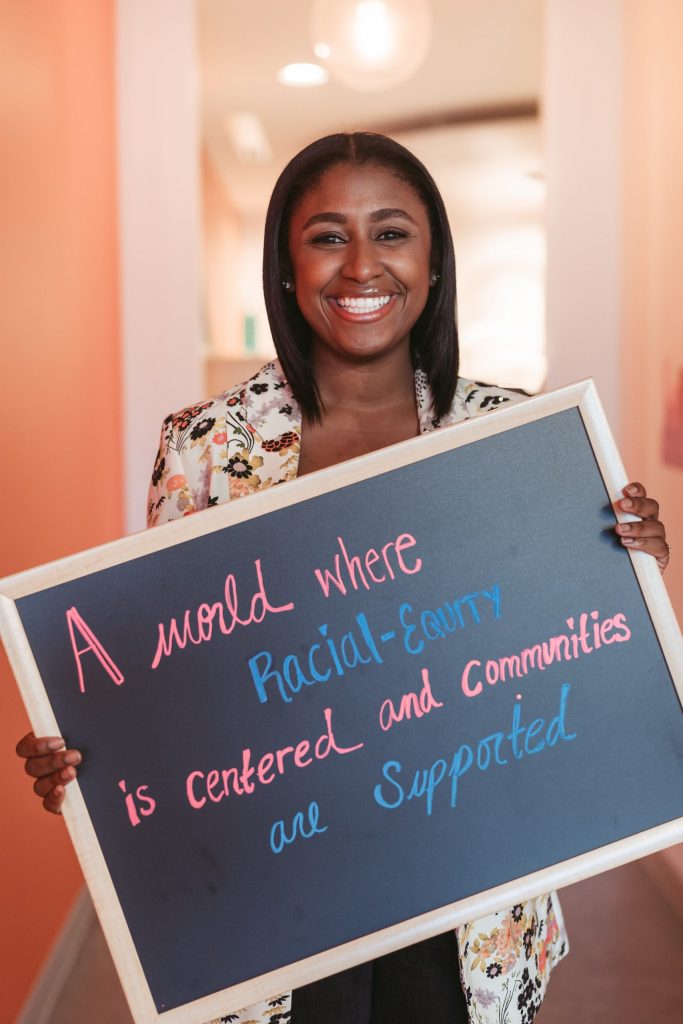 A world where
Racial-Equity
is centered and communities
are Supported